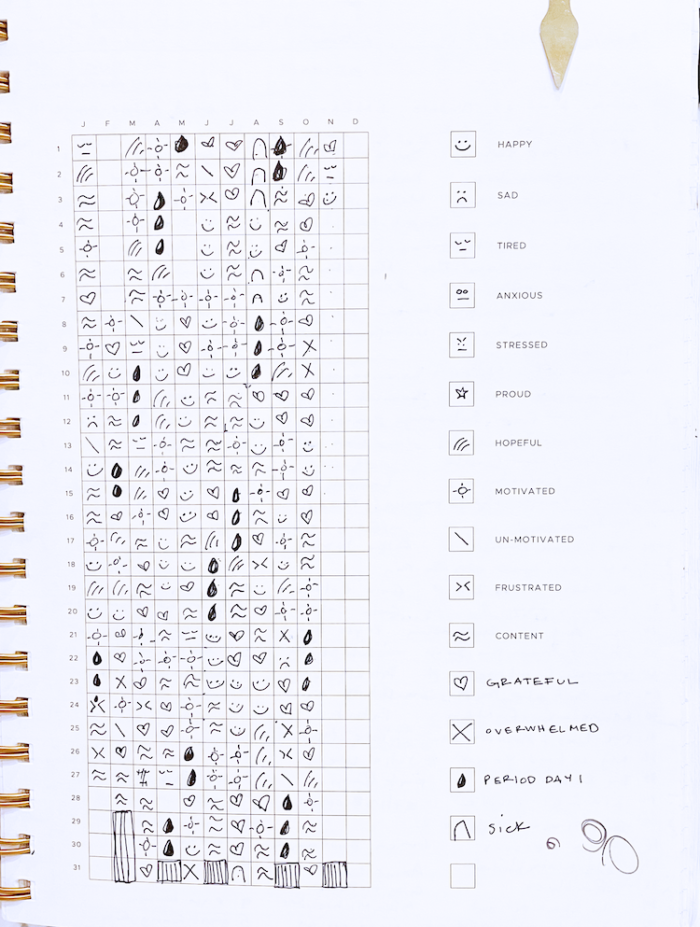 J F M A M J J A S O N D
1
2
3
4
5
6
7
8
9
10
11
12
13
14
15
16
17
18
19
20
21
22
23
24
25
26
27
28
29
30
31
HAPPY
SAD
TIRED
ANXIOUS
STRESSED
PROUD
HOPEFUL
MOTIVATED
UN-MOTIVATED
FRUSTRATED
CONTENT
GRATEFUL
OVERWHELMED
PERIOD DAY 1
SICK